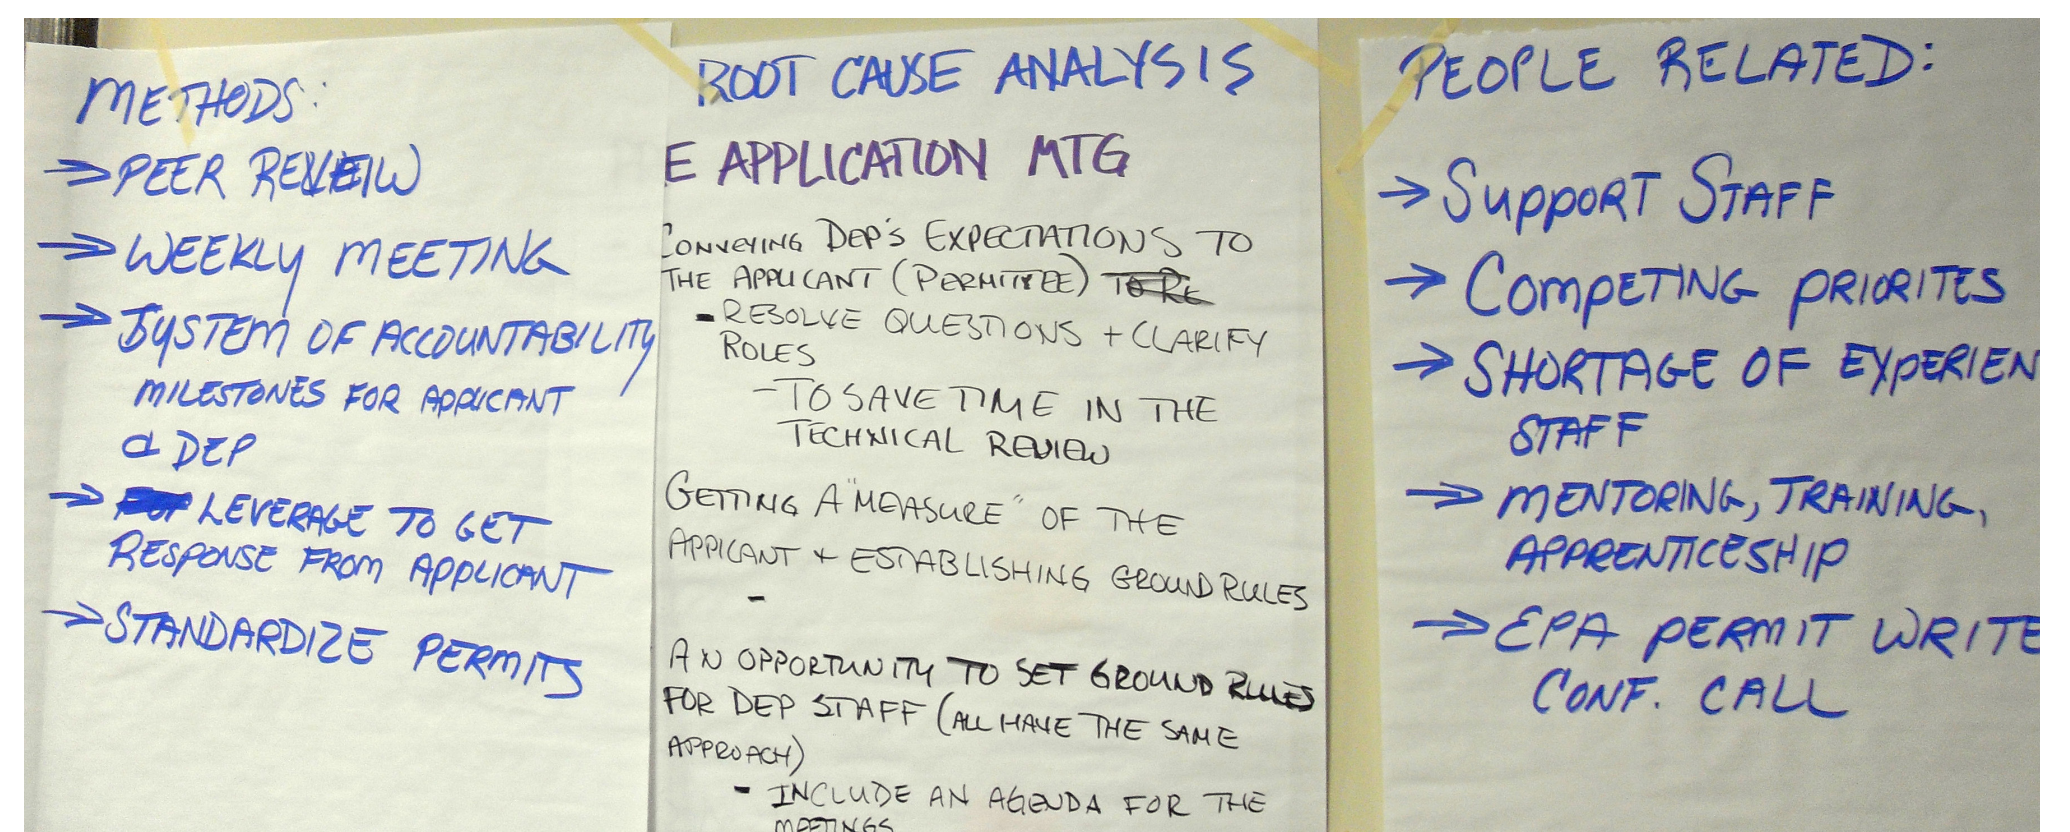 METHODS:
→ PEER REVEIW
→ WEEKLY MEETING
→ SYSTEM OF ACCOUNTABILITY
MILESTONES FOR APPLICANT
& DEP
→ LEVERAGE TO GET
RESPONSE FROM APPLICANT
→ STANDARDIZE PERMITS
ROOT CAUSE ANALYSIS
E APPLICATION MTG
CONVEYING DEP'S EXPECTATIONS TO
THE APPLICANT (PERMITTEE) TO RE
- RESOLVE QUESTIONS + CLARIFY
ROLES
- TO SAVE TIME IN THE
TECHNICAL REVIEW
GETTING A "MEASURE" OF THE
APPICANT + ESTABLISHING GROUND RULES
-
AN OPPORTUNITY TO SET GROUND RULES
FOR DEP STAFF (ALL HAVE THE SAME
APPROACH)
- INCLUDE AN AGENDA FOR THE
MEETINGS
PEOPLE RELATED:
→ SUPPORT STAFF
→ COMPETING PRIORITES
→ SHORTAGE OF EXPERIEN
STAFF
→ MENTORING, TRAINING,
APPRENTICESHIP
→ EPA PERMIT WRITE
CONF. CALL